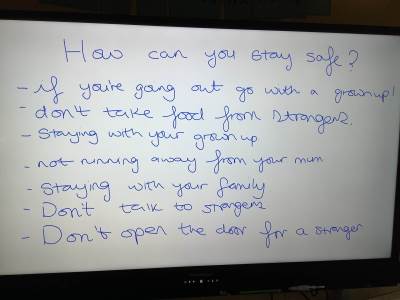 How can you stay safe?
- if you're going out go with a grownup!
- don't take food from strangers.
- Staying with your grownup
- not running away from your mum
- staying with your family
- Don't talk to strangers
- Don't open the door for a stranger